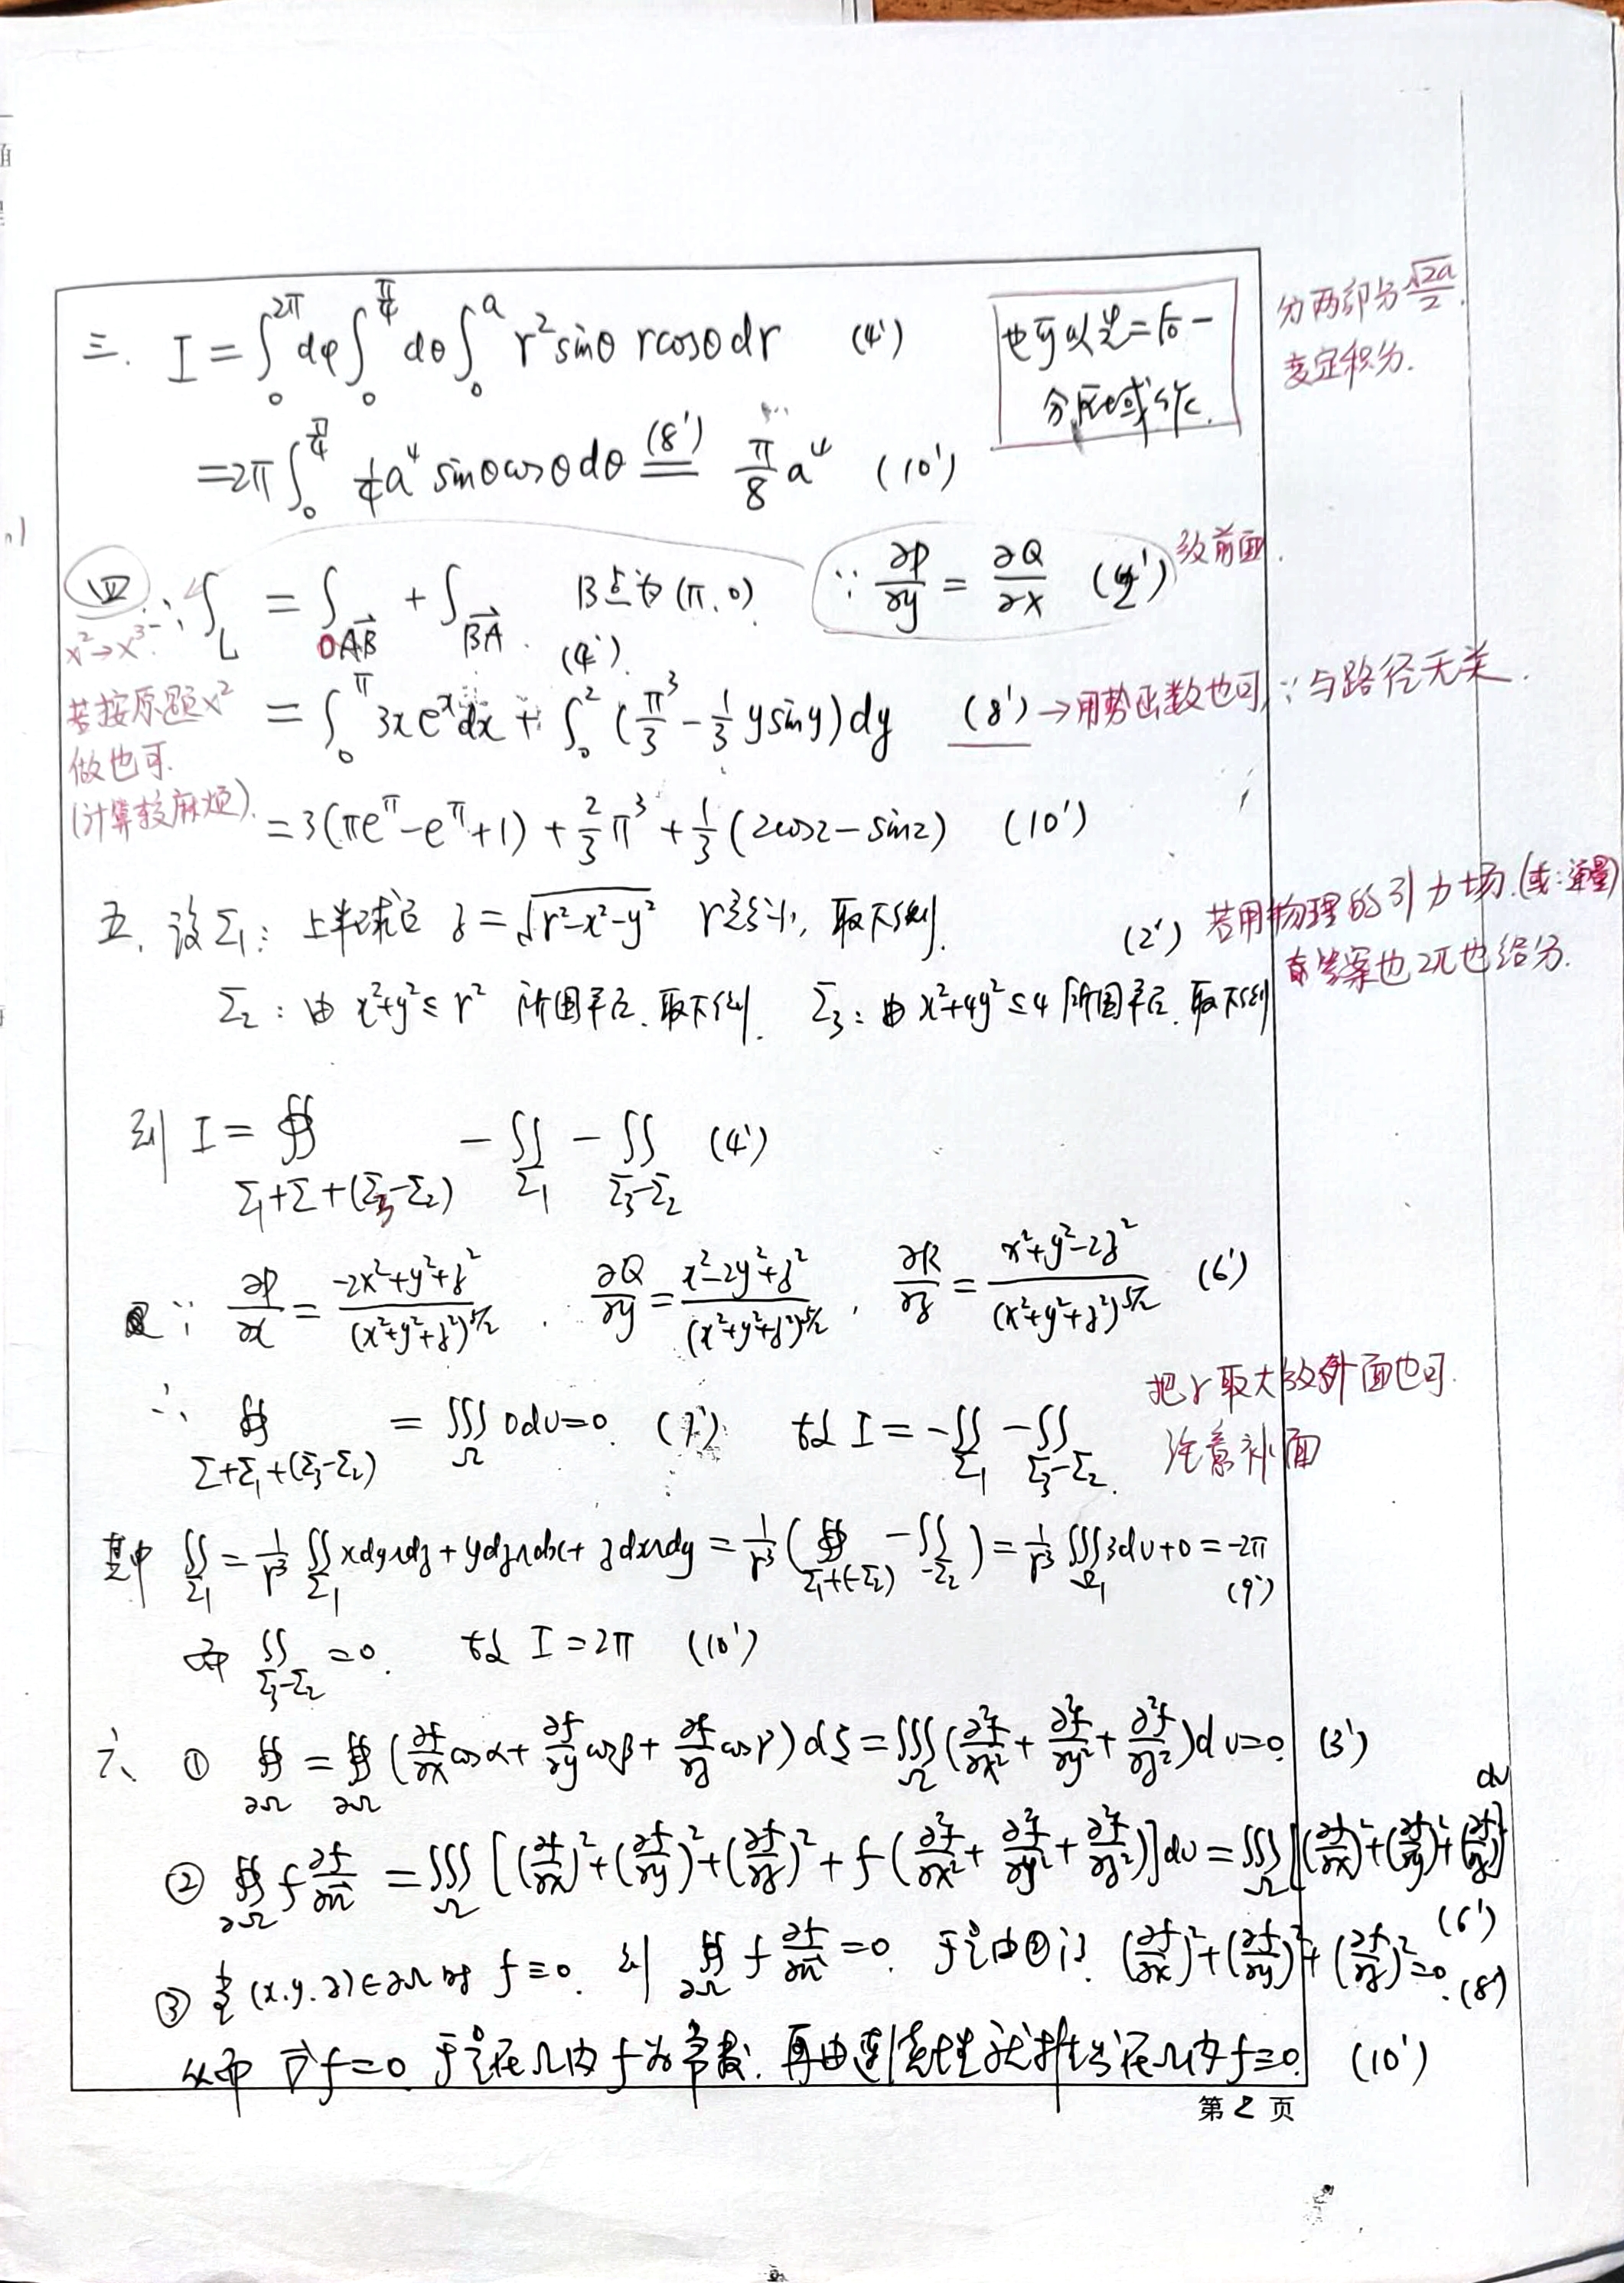 三. I = ∫₀^{2π} dφ ∫₀^{π/4} dθ ∫₀^a r² sinθ r cosθ dr (4')
也可以先二后一
分区域作.
分两部分 √2a/2.
变定积分.
= 2π ∫₀^{π/4} 1/4 a⁴ sinθ cosθ dθ (8')== π/8 a⁴ (10')
四 ∴ ∫_L = ∫_{OB} + ∫_{BA}. B点为(π, 0). (4') ∵ ∂P/∂y = ∂Q/∂x (2') 放前面.
x² → x³
若按原题x²
做也可.
(计算较麻烦).
= ∫₀^π 3x e^x dx + ∫₀² (π³/3 − 1/3 y sin y) dy (8') → 用势函数也可, ∵与路径无关.
= 3(πe^π − e^π + 1) + 2/3 π³ + 1/3 (2cos2 − sin2) (10')
五. 设Σ₁: 上半球面 z = √(r²−x²−y²) r充分小, 取下侧. (2') 若用物理的引力场.(或:通量)
答案也2π也给分.
Σ₂: 由 x²+y² ≤ r² 所围平面. 取下侧. Σ₃: 由 x²+4y² ≤ 4 所围平面. 取下侧
则 I = ∯_{Σ₁+Σ+(Σ₃−Σ₂)} − ∬_{Σ₁} − ∬_{Σ₃−Σ₂} (4')
∵ ∂P/∂x = (−2x²+y²+z²)/(x²+y²+z²)^{5/2}. ∂Q/∂y = (x²−2y²+z²)/(x²+y²+z²)^{5/2}. ∂R/∂z = (x²+y²−2z²)/(x²+y²+z²)^{5/2} (6')
∴ ∯_{Σ+Σ₁+(Σ₃−Σ₂)} = ∭_Ω 0dv = 0. (7') 故 I = −∬_{Σ₁} − ∬_{Σ₃−Σ₂}.
把r取大放外面也可.
注意补面
其中 ∬_{Σ₁} = 1/r³ ∬_{Σ₁} xdy∧dz + ydz∧dx + zdx∧dy = 1/r³ (∯_{Σ₁+(−Σ₂)} − ∬_{−Σ₂}) = 1/r³ ∭_{Ω₁} 3dv + 0 = −2π (9')
而 ∬_{Σ₃−Σ₂} = 0. 故 I = 2π (10')
六、 ① ∯_{∂Ω} = ∯_{∂Ω} (∂f/∂x cosα + ∂f/∂y cosβ + ∂f/∂z cosγ) dS = ∭_Ω (∂²f/∂x² + ∂²f/∂y² + ∂²f/∂z²) dv = 0. (3')
② ∯_{∂Ω} f ∂f/∂n⃗ = ∭_Ω [(∂f/∂x)² + (∂f/∂y)² + (∂f/∂z)² + f(∂²f/∂x² + ∂²f/∂y² + ∂²f/∂z²)] dv = ∭_Ω [(∂f/∂x)² + (∂f/∂y)² + (∂f/∂z)²] dv (6')
③ 当 (x.y.z)∈∂Ω时 f≡0. 则 ∯_{∂Ω} f ∂f/∂n⃗ = 0. 于是由②得 (∂f/∂x)² + (∂f/∂y)² + (∂f/∂z)² = 0. (8')
从而 ∇f = 0 于是在Ω内 f 为常数. 再由连续性就推出在Ω内 f≡0. (10')
第 2 页